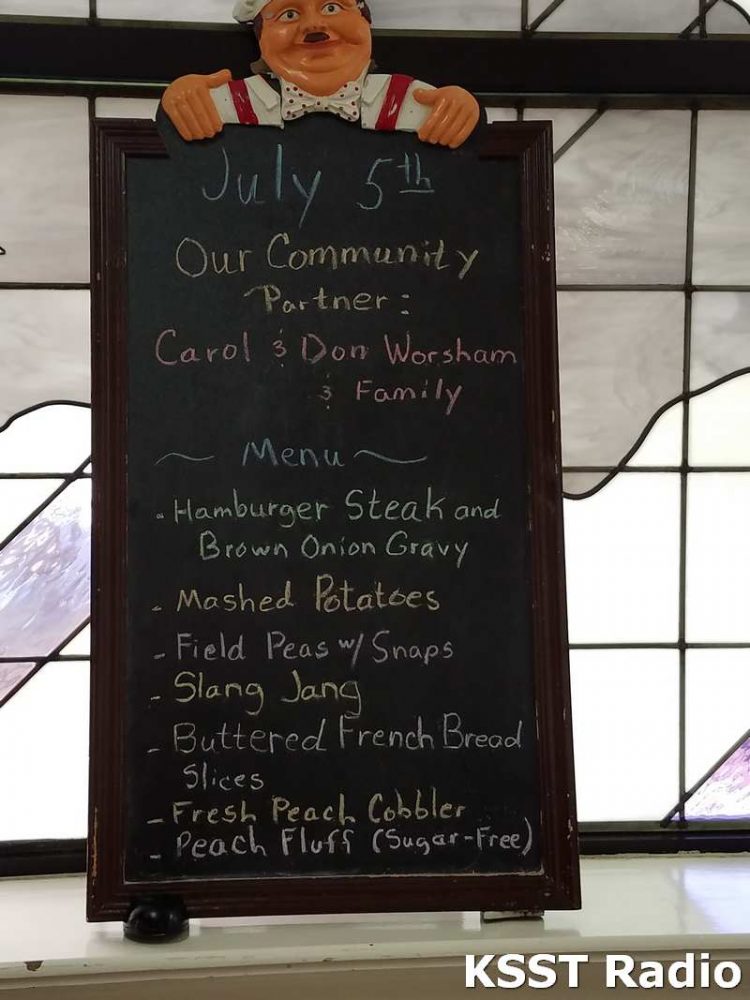 July 5th
Our Community
Partner:
Carol & Don Worsham
& Family
~ Menu ~
- Hamburger Steak and
Brown Onion Gravy
- Mashed Potatoes
- Field Peas w/ Snaps
- Slang Jang
- Buttered French Bread
Slices
- Fresh Peach Cobbler
- Peach Fluff (Sugar-Free)
KSST Radio